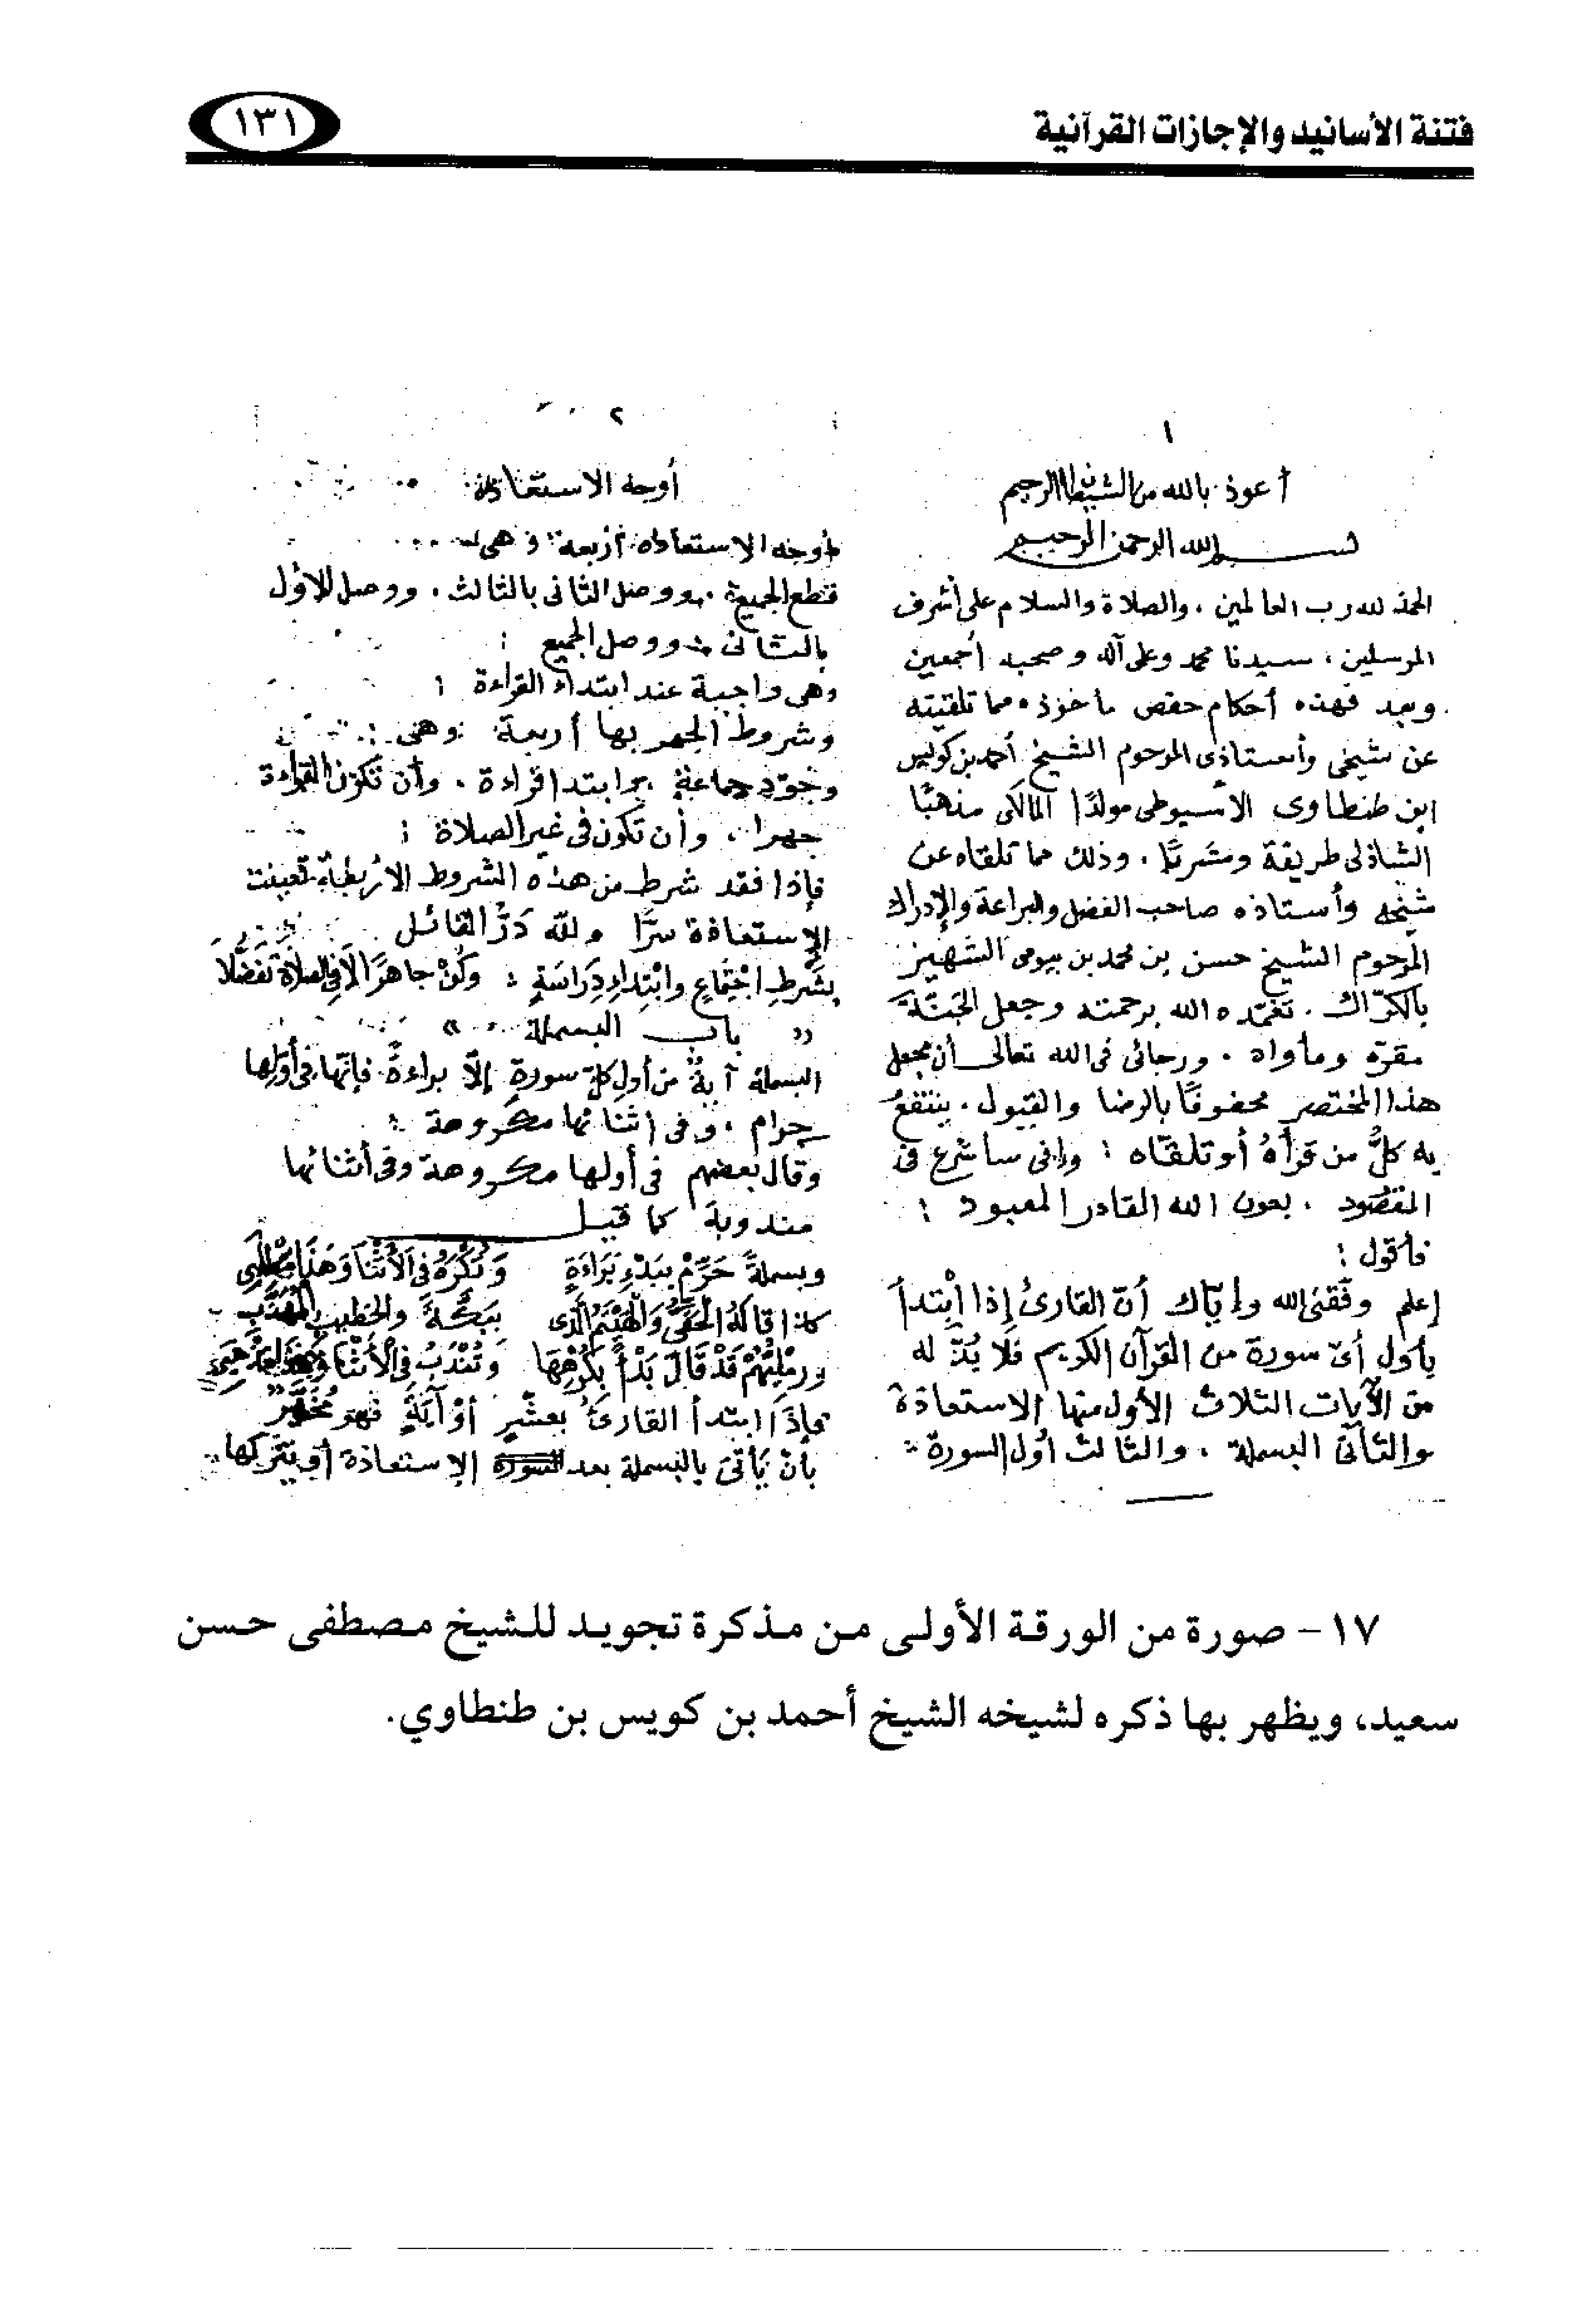 فتنة الأسانيد والإجازات القرآنية
١٣١
١
أعوذ بالله من الشيطان الرجيم
بسم الله الرحمن الرحيم
الحمد لله رب العالمين ، والصلاة والسلام على أشرف
المرسلين ، سيدنا محمد وعلى آله وصحبه أجمعين
وبعد فهذه أحكام حفص مأخوذه مما تلقيته
عن شيخى وأستاذى المرحوم الشيخ أحمد بن كويس
ابن طنطاوى الأسيوطى مولدًا المالكى مذهبًا
الشاذلى طريقة ومشربًا ، وذلك مما تلقاه عن
شيخه وأستاذه صاحب الفضل والبراعة والإدراك
المرحوم الشيخ حسن بن محمد بن بيومى الشهير
بالكرّاك . تغمّده الله برحمته وجعل الجنّة
مقرّه ومأواه . ورجائى فى الله تعالى أن يجعل
هذا المختصر محفوفًا بالرضا والقبول . ينتفعُ
به كلُّ من قرأهُ أو تلقّاه : وإنى سأشرع فى
المقصود . بعون الله القادر المعبود :
فأقول :
إعلم وفّقنى الله وإيّاك أنّ القارئ إذا ابْتدأ
بأول أىّ سورة من القرآن الكريم فلا بُدّ له
من الآيات الثلاث الأول منها الاستعاذة
والثانى البسملة . والثالث أول السورة :
٢
أوجه الاستعاذة
أوجه الاستعاذة أربعة : وهى
قطع الجميع . ووصل الثانى بالثالث . ووصل الأوّل
بالثانى ووصل الجميع :
وهى واجبة عند ابتداء القراءة :
وشروط الجهر بها أربعة وهى :
وجود جماعة ابتدا قراءة . وأن تكون القراءة
جهرا ، وأن تكون فى غير الصلاة :
فإذا فقد شرط من هذه الشروط الأربعة تعينت
الإستعاذة سرًّا ولله دَرُّ القائل
بِشَرطِ اجْتِمَاعٍ وابْتِداءِ دِرَاسَةٍ : وكُنْ جاهرًا لا فى الصلاة تفضّلا
« باب البسملة »
البسملة آيةٌ من أول كل سورةٍ إلّا براءةٌ فإنّها فى أولِها
حرام ، وفى أثنائها مكروهة :
وقال بعضهم فى أولها مكروهة وفى أثنائها
مندوبة كما قيل
وبسملةً حَرِّمْ بِبَدْءِ بَرَاءَةٍ وَتُكْرَهُ فى الأَثْنَا وَهَذَا
كذا قالهُ الحَفَنِىُّ وَالهَيْتَمِىُّ الَّذِى بَمَكَّةَ والخطيب
ورَمْلِيُّهُمْ قَدْ قَالَ بَدْأً بِكُرْهِهَا وتُنْدَبُ فى الأَثْنَا
فإذَا ابتدأ القارئُ بعشْرٍ أوْ آيَةٍ فهوَ مُخَيَّرٌ
بأنْ يَأتىَ بالبسملة بعد السورة الإستعاذة أو يتركها
١٧- صورة من الورقة الأولى من مذكرة تجويد للشيخ مصطفى حسن
سعيد، ويظهر بها ذكره لشيخه الشيخ أحمد بن كويس بن طنطاوي.